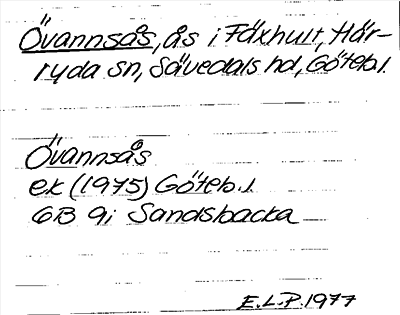 Övannsås, ås i Fäxhult, Här-
ryda sn, Sävedals hd, Göteb.l.
Övannsås
ek (1975) Göteb.l.
6B 9i Sandsbacka
E.L.P. 1977